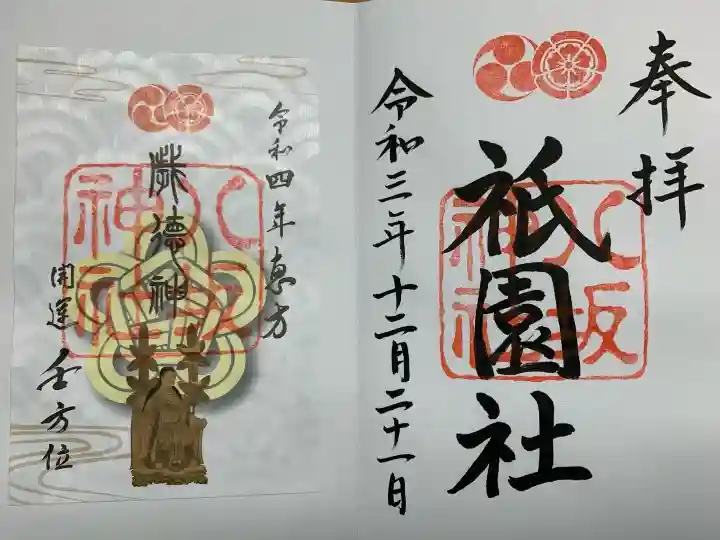 奉拝
八坂神社
祇園社
令和三年十二月二十一日
令和四年恵方
八坂神社
歳徳神
開運壬方位